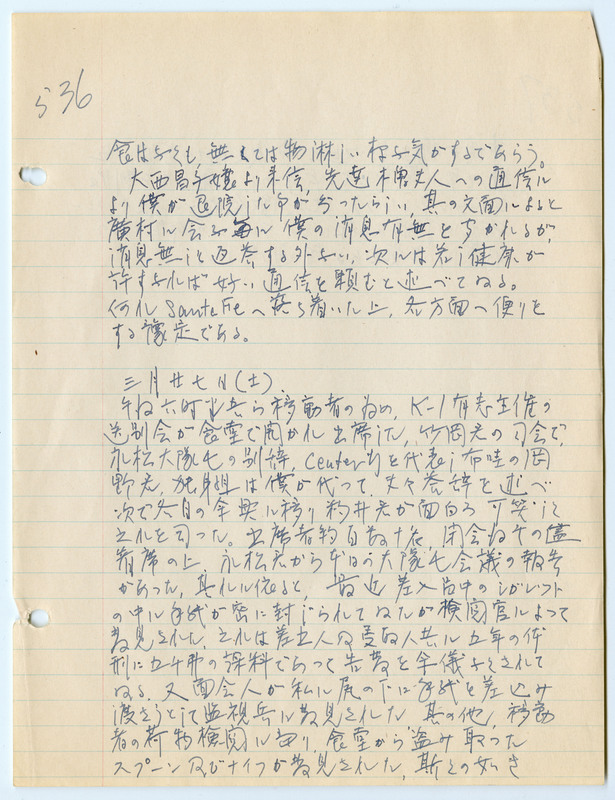 536
食はずとも、無くては物淋しい様な気がするであらう。
大西昌子嬢より来信、先達 夫人への通信に
より僕が退院した事が分ったらしい、其の文面によると
廣村に会ふ毎に僕の消息有無を きかれるが、
消息無しと返答する外ない、次には若し健康が
許すなれば好い通信を頼むと述べてゐる。
何れ Santa Fe へ落ち着いた上、各方面へ便りを
する豫定である。
三月廿七日(土).
午后六時半から移動者の為め、K-1有志主催の
送別会が食堂で開かれ出席した、竹岡君の司会で、
永松大隊長の別辞、Center側を代表し布哇の岡
野君、独身組は僕が代って、夫々答辞を述べ
次で各自の余興に移り 井君が面白ろ可笑しく
之れを司った。出席者約百数十名、閉会后その儘
着席の上、永松君から本日の大隊長会議の報告
があった、其れに依ると、最近差入品中のシガレット
の中に手紙が密に封じられてゐたが検閲官によって
発見された、之れは差出人及受取人共に五年の体
刑に五千弗の課料であって告発を余儀なくされて
ゐる、又面会人が私に尻の下に手紙を差込み
渡さうとして監視兵に発見された、其の他、移動
者の荷物検閲に当り、食堂から盗み取った
スプーン及びナイフが発見された、斯くの如き